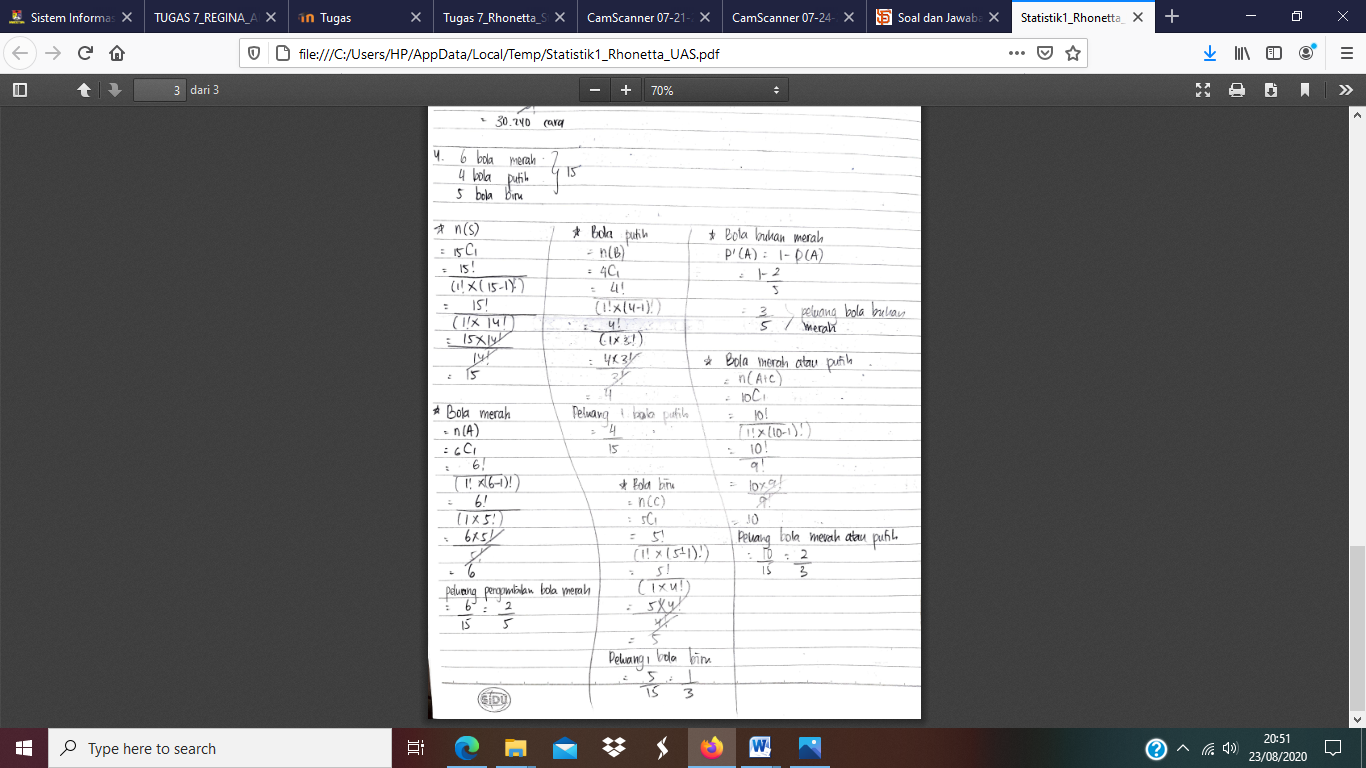 Sistem Informas
TUGAS 7_REGINA_A
Tugas
Tugas 7_Rhonetta_S
CamScanner 07-21-
CamScanner 07-24-
Soal dan Jawaba
Statistik1_Rhonetta_
file:///C:/Users/HP/AppData/Local/Temp/Statistik1_Rhonetta_UAS.pdf
3 dari 3
70%
= 30.240 cara
4. 6 bola merah
4 bola putih
5 bola biru
15
* n(S)
= 15C1
= 15!
(1! × (15-1)!)
= 15!
(1! × 14!)
= 15×14!
14!
= 15
* Bola merah
= n(A)
= 6C1
= 6!
(1! × (6-1)!)
= 6!
(1 × 5!)
= 6×5!
5!
= 6
peluang pengambilan bola merah
= 6 = 2
15 5
* Bola putih
= n(B)
= 4C1
= 4!
(1! × (4-1)!)
= 4!
(1×3!)
= 4×3!
3!
= 4
Peluang 1 bola putih
= 4
15
* Bola biru
= n(C)
= 5C1
= 5!
(1! × (5-1)!)
= 5!
(1×4!)
= 5×4!
4!
= 5
Peluang 1 bola biru
= 5 = 1
15 3
* Bola bukan merah
P'(A) = 1 - P(A)
= 1 - 2
5
= 3 peluang bola bukan
5 merah
* Bola merah atau putih
= n(A+C)
= 10C1
= 10!
(1! × (10-1)!)
= 10!
9!
= 10×9!
9!
= 10
Peluang bola merah atau putih
= 10 = 2
15 3
SIDU
Type here to search
20:51
23/08/2020